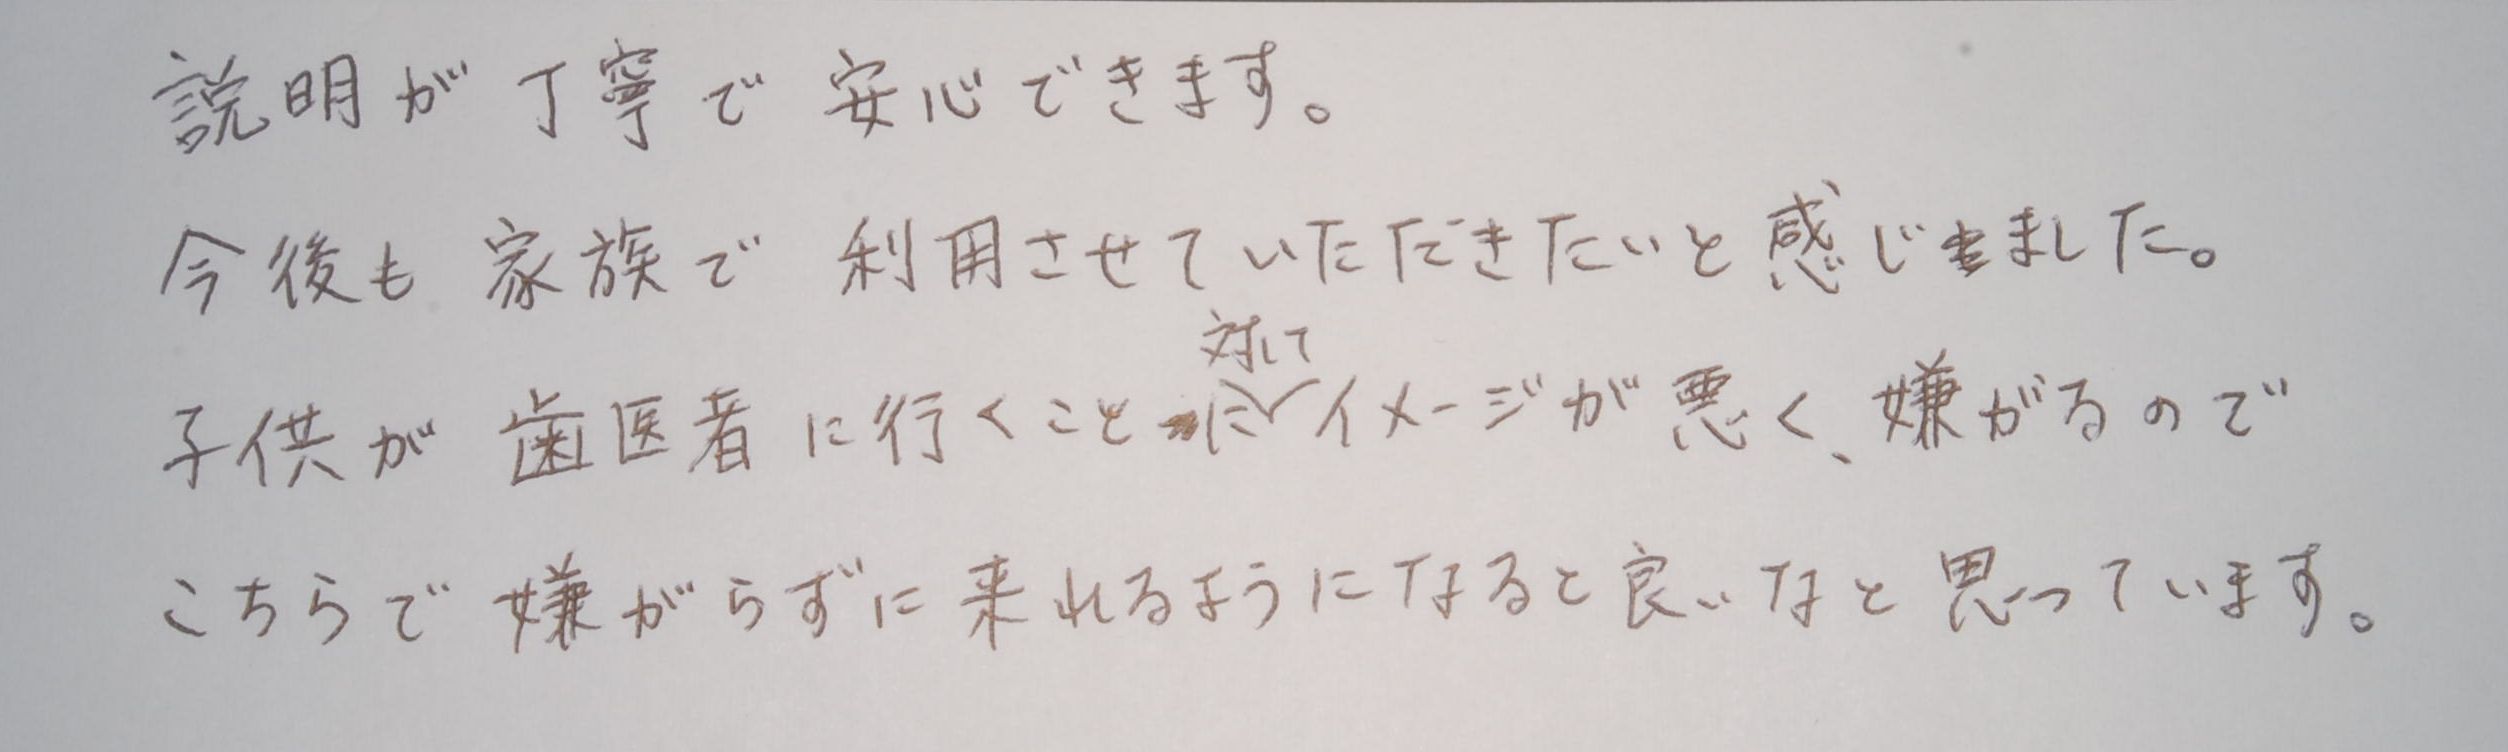 説明が丁寧で安心できます。
今後も家族で利用させていただきたいと感じました。
子供が歯医者に行くことに対してイメージが悪く、嫌がるので
こちらで嫌がらずに来れるようになると良いなと思っています。